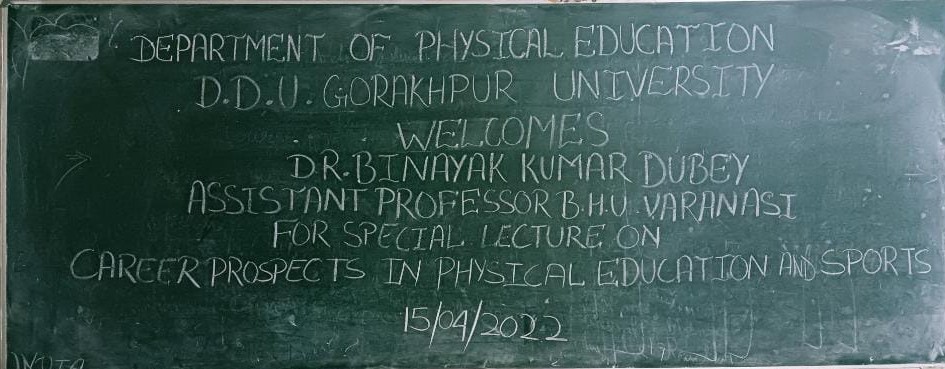 DEPARTMENT OF PHYSICAL EDUCATION
D.D.U. GORAKHPUR UNIVERSITY
WELCOMES
DR.BINAYAK KUMAR DUBEY
ASSISTANT PROFESSOR B.H.U. VARANASI
FOR SPECIAL LECTURE ON
CAREER PROSPECTS IN PHYSICAL EDUCATION AND SPORTS
15/04/2022
INDIA